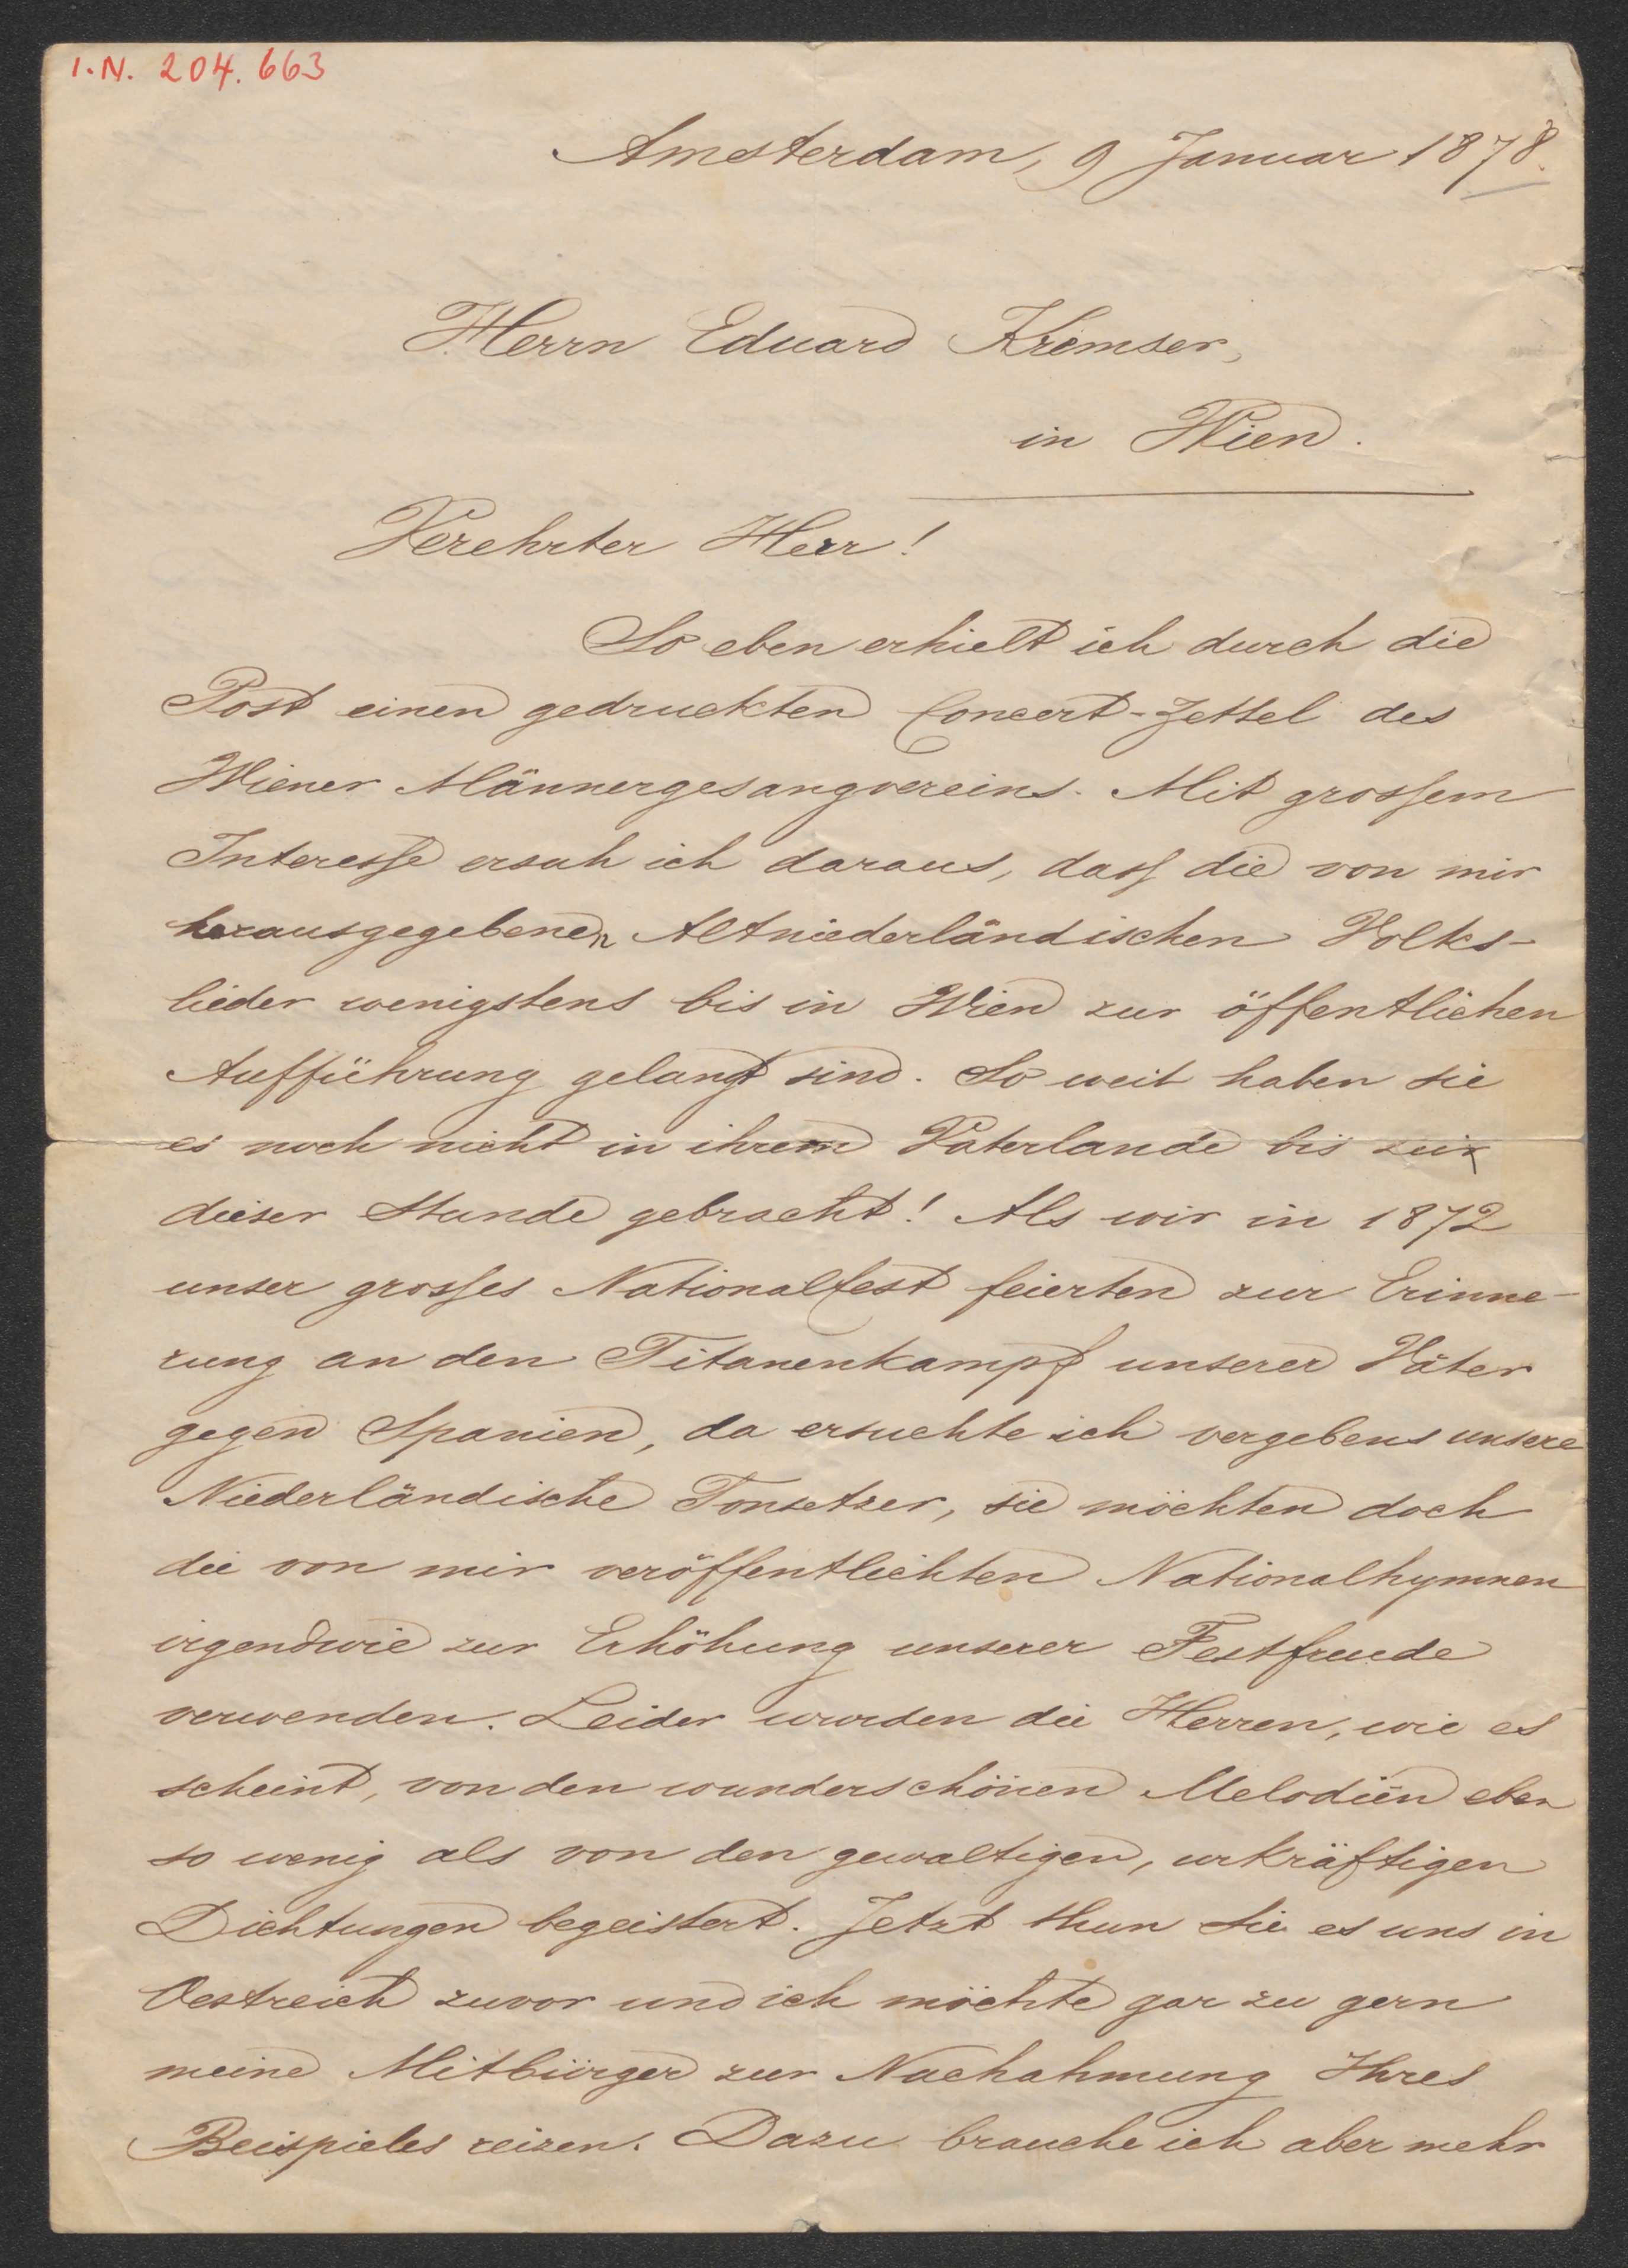 I.N. 204.663
Amsterdam, 9 Januar 1878.
Herrn Eduard Kremser,
in Wien.
Verehrter Herr!
So eben erhielt ich durch die
Post einen gedruckten Concert-Zettel des
Wiener Männergesangvereins. Mit grossem
Interesse ersah ich daraus, dass die von mir
herausgegebenen Altniederländischen Volks-
lieder wenigstens bis in Wien zur öffentlichen
Aufführung gelangt sind. So weit haben sie
es noch nicht in ihrem Vaterlande bis zur
dieser Stunde gebracht! Als wir in 1872
unser grosses Nationalfest feierten zur Erinne-
rung an den Titanenkampf unserer Väter
gegen Spanien, da ersuchte ich vergebens unsere
Niederländische Tonsetzer, sie möchten doch
die von mir veröffentlichten Nationalhymnen
irgendwie zur Erhöhung unserer Festfreude
verwenden. Leider wurden die Herren, wie es
scheint, von den wunderschönen Melodien eben
so wenig als von den gewaltigen, urkräftigen
Dichtungen begeistert. Jetzt thun Sie es uns in
Oestreich zuvor und ich möchte gar zu gern
meine Mitbürger zur Nachahmung Ihres
Beispieles reizen. Dazu brauche ich aber mehr